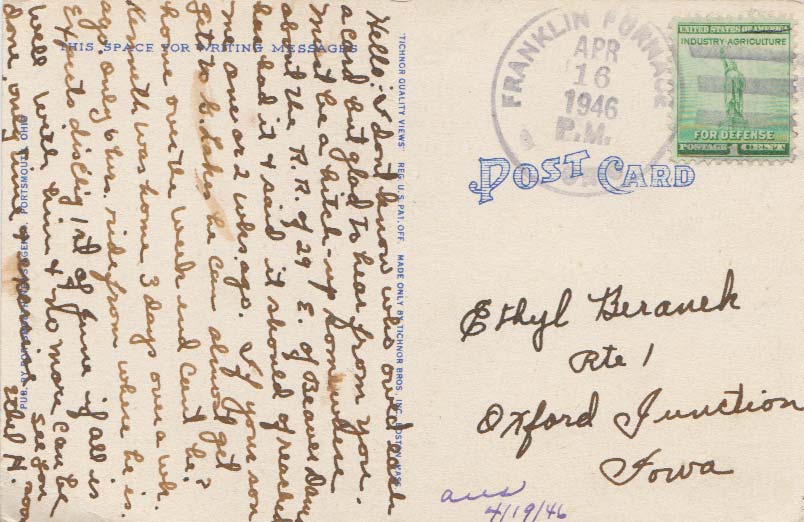 THIS SPACE FOR WRITING MESSAGES
Hello: I don't know who owed each
a card but glad to hear from you.
Must be a hitch-up somewhere
about the R. R. of 29 E. of Beaver Dam
has had it & said it should of reached
me one or 2 wks ago. If your son
got to G. Lakes he can almost get
home over the week end can't he?
Kenneth was home 3 days over a wk.
ago. only 6 hrs. ride from where he is.
Expects dischg 1st of June if all is
well with him & no more can be
done, only time & see you soon
Ethel H.
PUB. BY PORTSMOUTH NEWS AGENCY, PORTSMOUTH, OHIO
"TICHNOR QUALITY VIEWS" REG. U.S. PAT. OFF. MADE ONLY BY TICHNOR BROS., INC., BOSTON, MASS.
FRANKLIN FURNACE
APR
16
1946
P.M.
UNITED STATES OF AMERICA
INDUSTRY-AGRICULTURE
FOR DEFENSE
POSTAGE 1 CENT
POST CARD
Ethyl Beranek
Rte 1
Oxford Junction
Iowa
ans
4/19/46